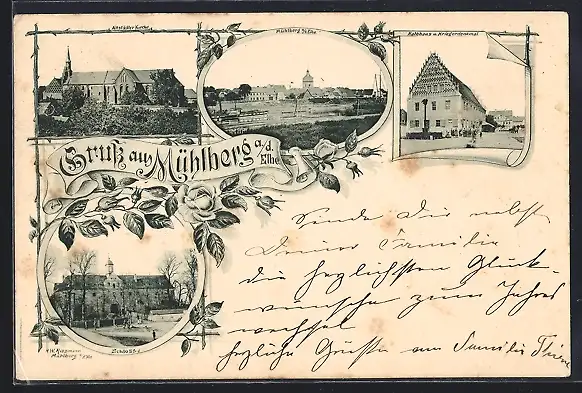 Altstädter Kirche
Mühlberg a/Elbe
Rathhaus u. Kriegerdenkmal
Gruß aus Mühlberg a/d.
Elbe
Schloss
Mühlberg a/Elbe
Sende Dir nebst
Deiner Familie
die herzlichsten Glück-
wünsche zum Jahres
wechsel
herzliche Grüße an Familie